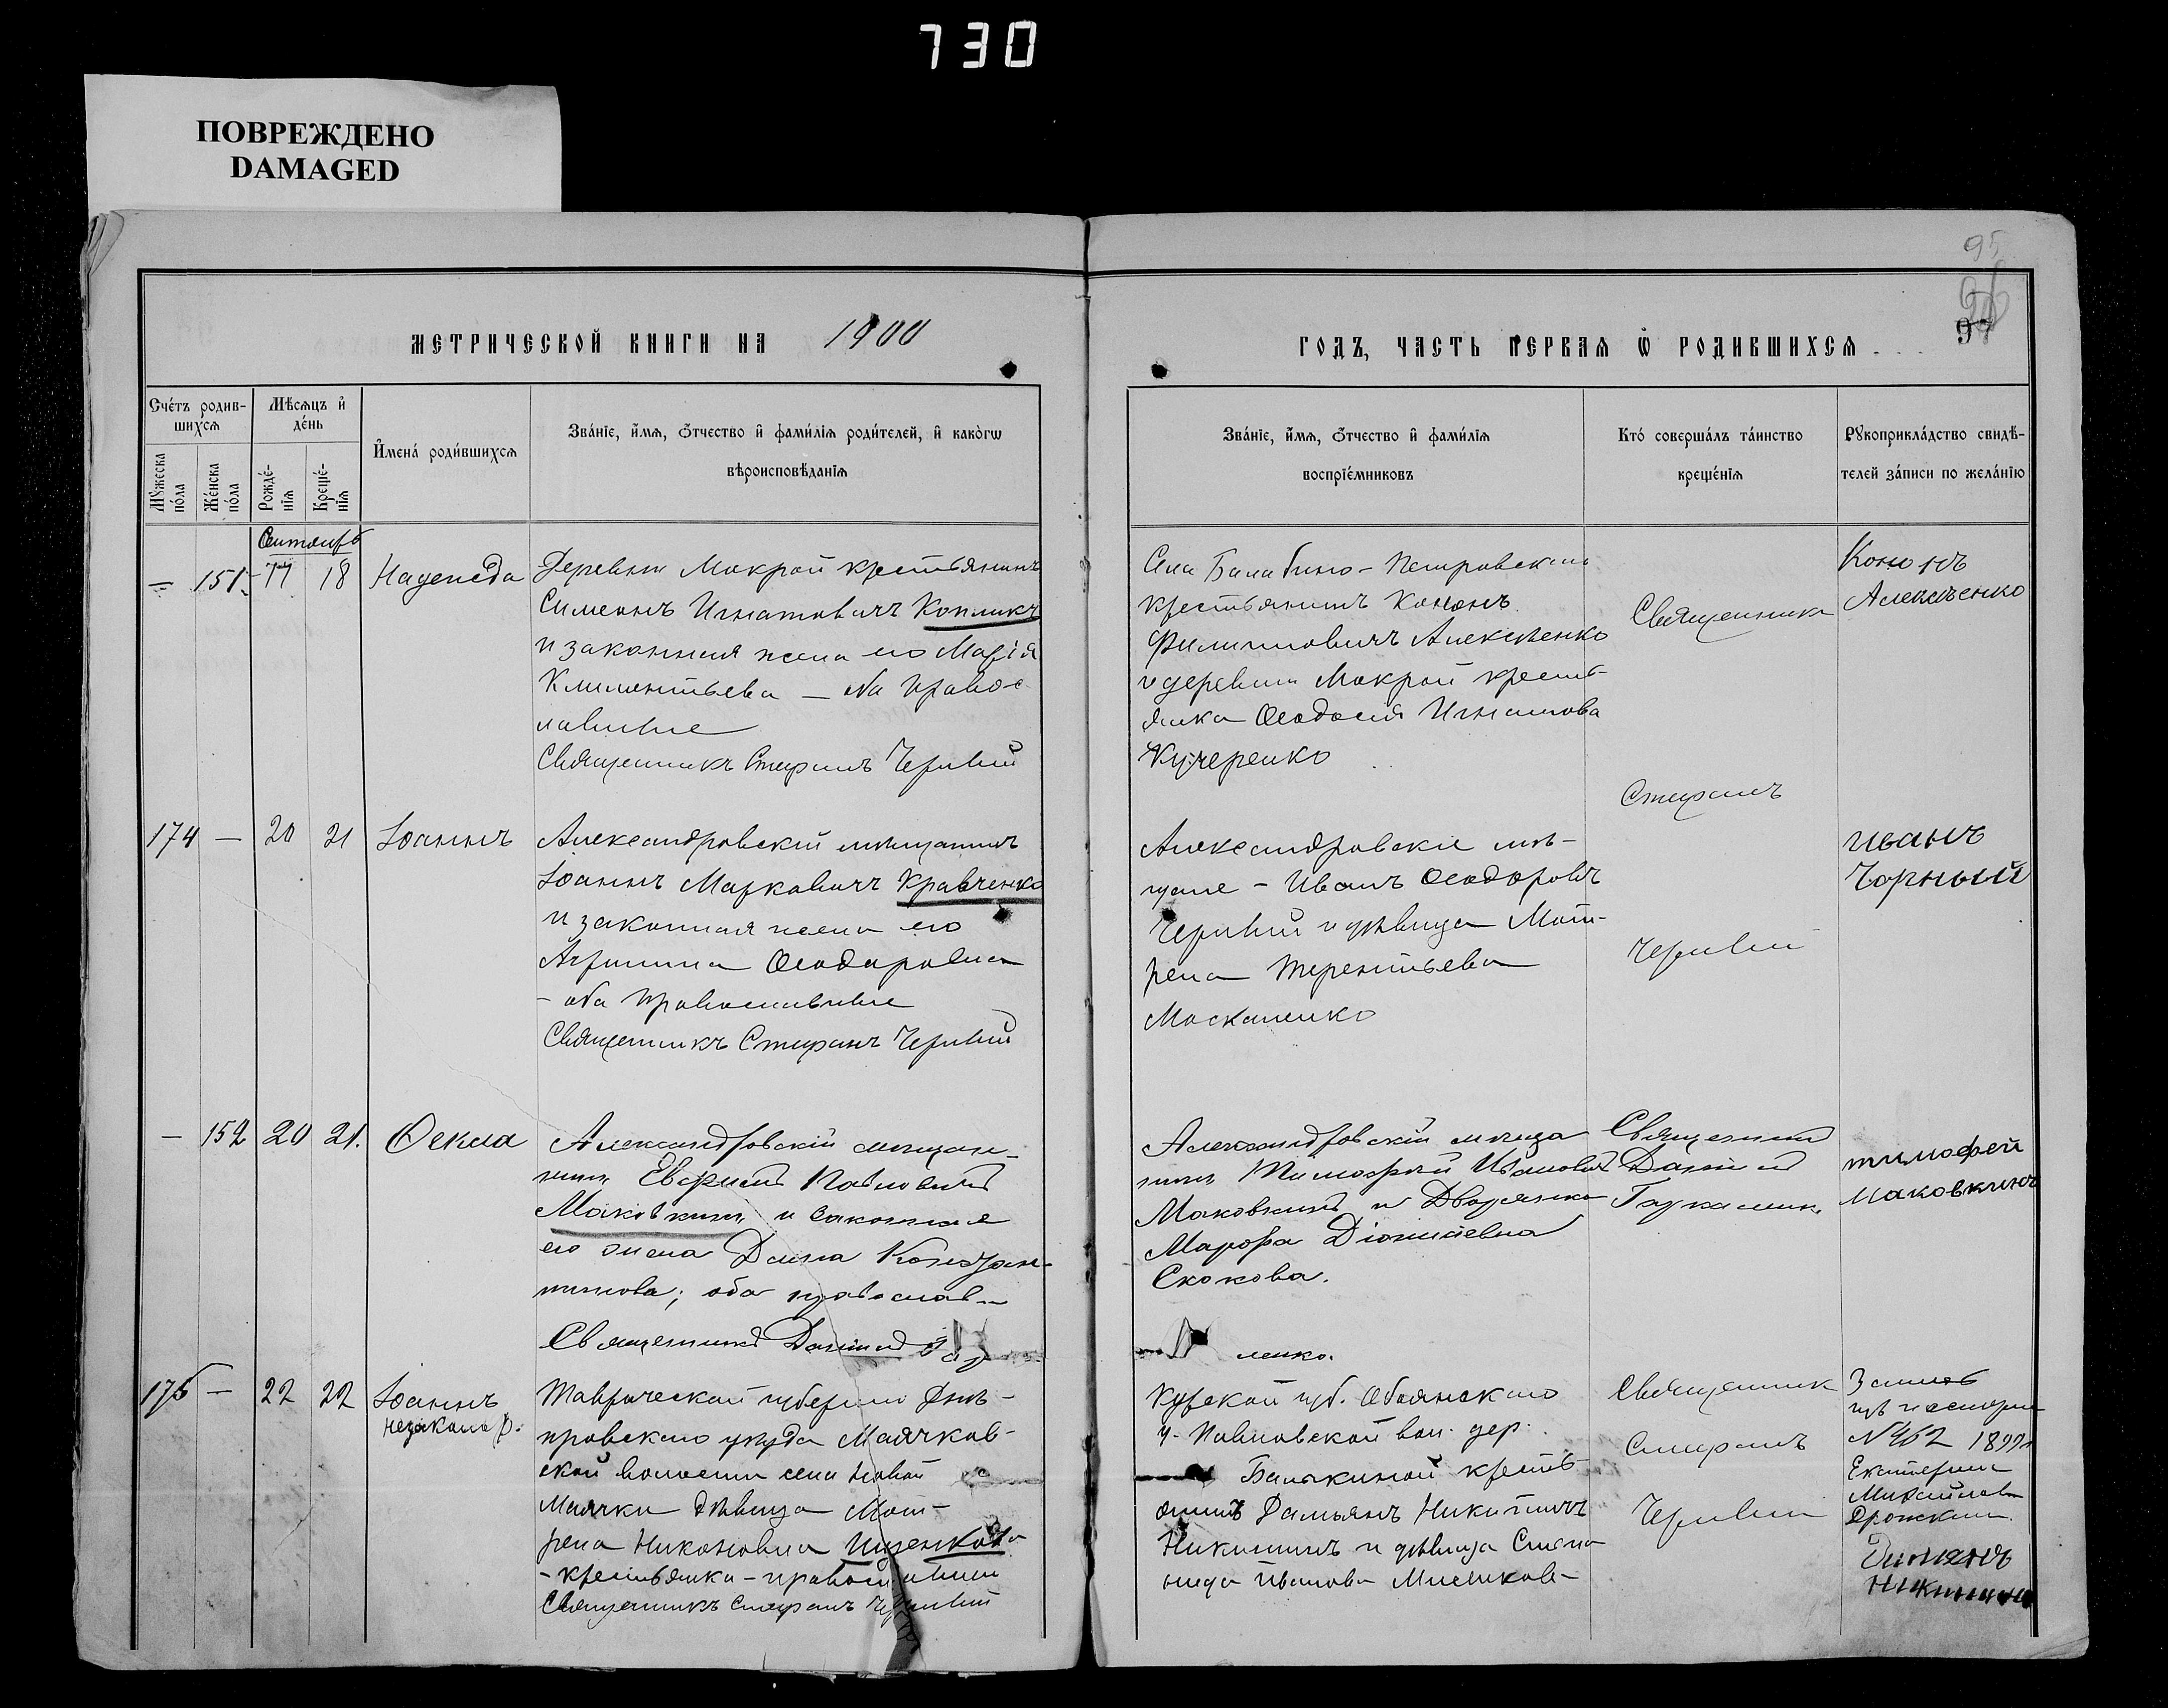 730
ПОВРЕЖДЕНО
DAMAGED
95
97
МЕТРИЧЕСКОЙ КНИГИ НА 1900
ГОДЪ, ЧАСТЬ ПЕРВАЯ Ѡ РОДИВШИХСЯ
Счетъ родив-
шихся
Мѣсяцъ и
день
Мужеска
пола
Женска
пола
Рожде-
нія
Креще-
нія
Имена родившихся
Званіе, имя, отчество и фамилія родителей, и какогѡ
вѣроисповѣданія
Званіе, имя, отчество и фамилія
воспріемниковъ
Кто совершалъ таинство
крещенія
Рукоприкладство свидѣ-
телей записи по желанію
Сентябрь
151 17 18 Надежда
Деревни Мокрой крестьянинъ
Симеонъ Игнатовичъ Копликъ
и законная жена его Марія
Климентьева — оба правос-
лавные
Священникъ Стефанъ Чернвый
Села Балабино-Петровскаго
крестьянинъ Кононъ
Филипповичъ Алексѣенко
и деревни Мокрой кресть-
янка Ѳеодосія Игнатова
Кучеренко
Священникъ
Стефанъ
Кононъ
Алексѣенко
174 — 20 21 Іоаннъ
Александровскій мѣщанинъ
Іоаннъ Марковичъ Кравченко
и законная жена его
Агрипина Ѳеодоровна
- оба православные
Священникъ Стефанъ
Александровскіе мѣ-
щане - Иванъ Ѳеодоровъ
и дѣвица Мот-
рена Терентьева
Москаленко
иванъ
Чорный
— 152 20 21. Ѳекла
Александровскій мѣщан-
нинъ Павловичъ
Маковкинъ и законная
его жена Константи-
нова; оба православн
Священникъ Даніилъ
Александровскій мѣща
нинъ Тимофей Ивановичъ
Маковкинъ и Дворянка
Марфа Діонисіевна
Скокова.
Священникъ
Даніилъ
тимофей
Маковкинъ
175 — 22 22 Іоаннъ
незаконор.
Таврической губерніи Днѣ-
провскаго уѣзда Маячков-
ской волости села Новой
Маячки дѣвица Мот-
рена Никоновна Ищенкова
- крестьянка - православной
Священникъ Стефанъ
ленко.
Курской губ. Обоянскаго
у. Павловской вол. дер.
Балыкиной кресть-
янинъ Дамьянъ Никитичъ
Никитинъ и дѣвица
Иванова
Священникъ
Стефанъ
№ 462 1899
Екатерина
Михайлов